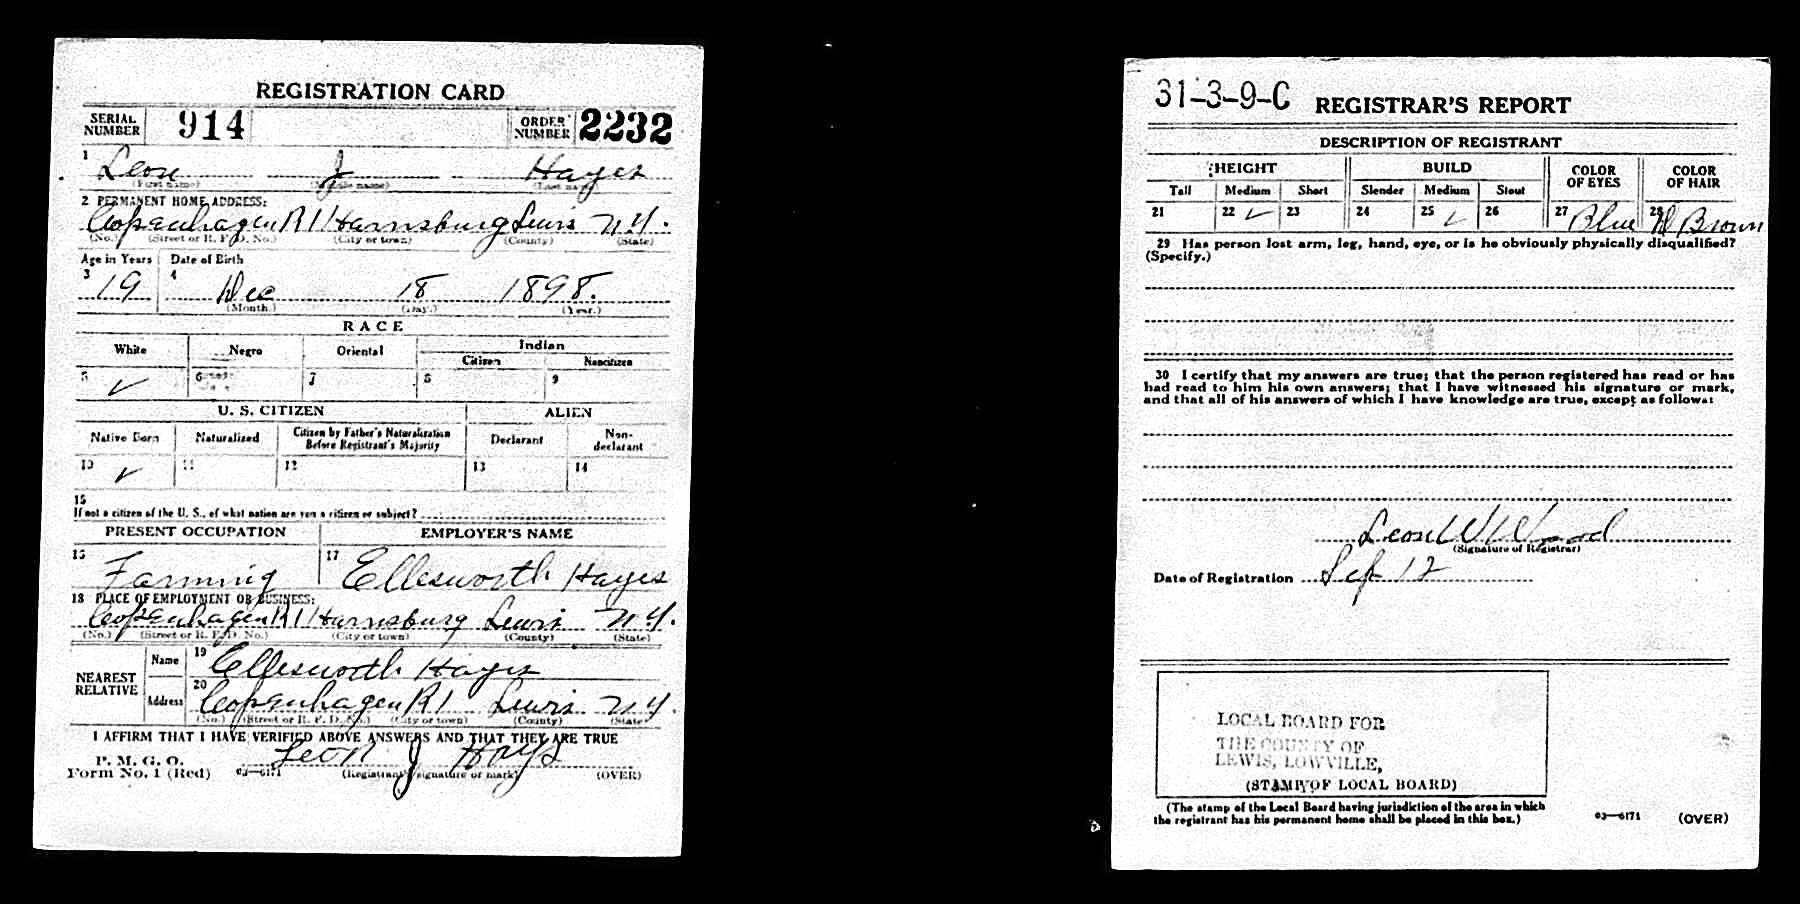 REGISTRATION CARD
SERIAL NUMBER 914 ORDER NUMBER 2232
1 Leon J Hayes
(First name) (Middle name) (Last name)
2 PERMANENT HOME ADDRESS:
Copenhagen R1 Harrisburg Lewis N.Y.
(No.) (Street or R. F. D. No.) (City or town) (County) (State)
Age in Years Date of Birth
3 19 4 Dec 18 1898.
(Month.) (Day.) (Year.)
RACE
White Negro Oriental Indian
Citizen Noncitizen
5 ✓ 6 7 8 9
U. S. CITIZEN ALIEN
Native Born Naturalized Citizen by Father's Naturalization Before Registrant's Majority Declarant Non-declarant
10 ✓ 11 12 13 14
15
If not a citizen of the U. S., of what nation are you a citizen or subject?
PRESENT OCCUPATION EMPLOYER'S NAME
16 Farming 17 Ellesworth Hayes
18 PLACE OF EMPLOYMENT OR BUSINESS:
Copenhagen R1 Harrisburg Lewis N.Y.
(No.) (Street or R. F. D. No.) (City or town) (County) (State)
NEAREST RELATIVE
Name 19 Ellesworth Hayes
Address 20 Copenhagen R1 Lewis N.Y.
(No.) (Street or R. F. D. No.) (City or town) (County) (State)
I AFFIRM THAT I HAVE VERIFIED ABOVE ANSWERS AND THAT THEY ARE TRUE
P. M. G. O.
Form No. 1 (Red) 03—6171 Leon J Hays
(Registrant's signature or mark) (OVER)
31-3-9-C REGISTRAR'S REPORT
DESCRIPTION OF REGISTRANT
HEIGHT BUILD COLOR OF EYES COLOR OF HAIR
Tall Medium Short Slender Medium Stout
21 22 ✓ 23 24 25 ✓ 26 27 Blue 28 D Brown
29 Has person lost arm, leg, hand, eye, or is he obviously physically disqualified?
(Specify.)
30 I certify that my answers are true; that the person registered has read or has
had read to him his own answers; that I have witnessed his signature or mark,
and that all of his answers of which I have knowledge are true, except as follows:
Leon W Wood
(Signature of Registrar)
Date of Registration Sep 12
LOCAL BOARD FOR
THE COUNTY OF
LEWIS, LOWVILLE,
(STAMP OF LOCAL BOARD)
(The stamp of the Local Board having jurisdiction of the area in which
the registrant has his permanent home shall be placed in this box.)
03—6171 (OVER)